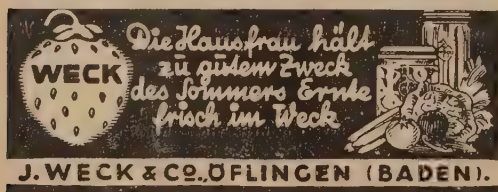 WECK
Die Hausfrau hält
zu gutem Zweck
des Sommers Ernte
frisch im Weck
J. WECK & CO., ÖFLINGEN (BADEN).